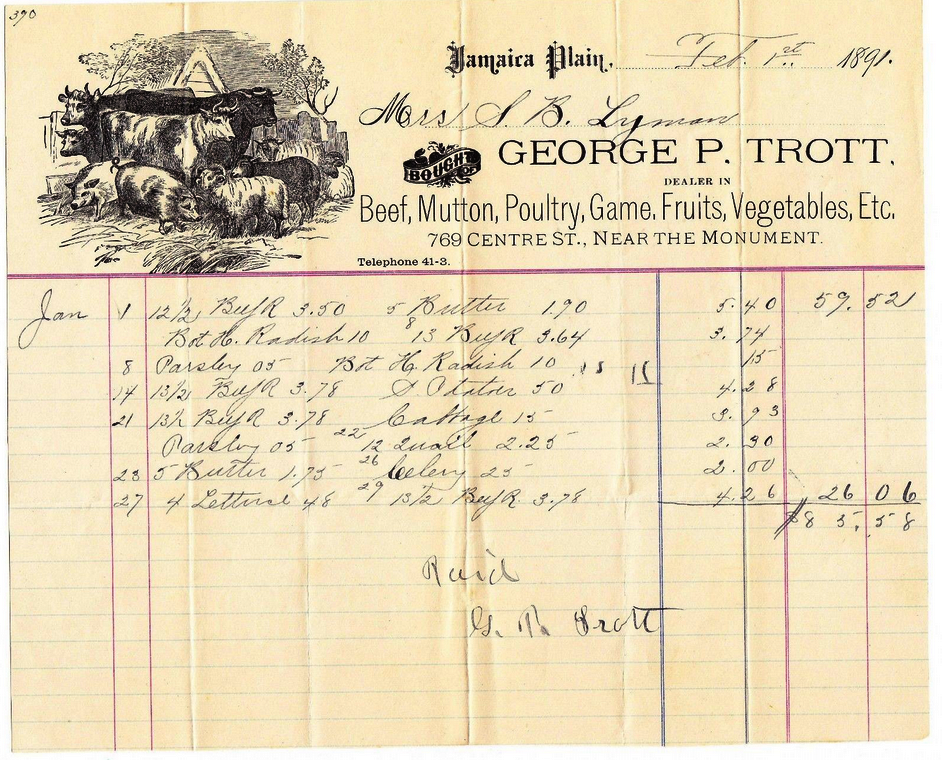 390
Jamaica Plain, Feb. 1st. 1891.
Mrs S. B. Lyman
BOUGHT OF GEORGE P. TROTT,
DEALER IN
Beef, Mutton, Poultry, Game, Fruits, Vegetables, Etc.
769 CENTRE ST., NEAR THE MONUMENT.
Telephone 41-3.
Jan 1 12 1/2 Beef R 3.50 5 Butter 1.90 5.40 59.52
Bot H. Radish 10 8 13 Beef R 3.64 3.74
8 Parsley 05 Bot H. Radish 10 15
14 13 1/2 Beef R 3.78 S Potatoes 50 4.28
21 13 1/2 Beef R 3.78 Cabbage 15 3.93
Parsley 05 22 12 Quail 2.25 2.30
23 5 Butter 1.75 26 Celery 25 2.00
27 4 Lettuce 48 29 13 1/2 Beef R 3.78 4.26 26 06
$85.58
Paid
G. P. Trott